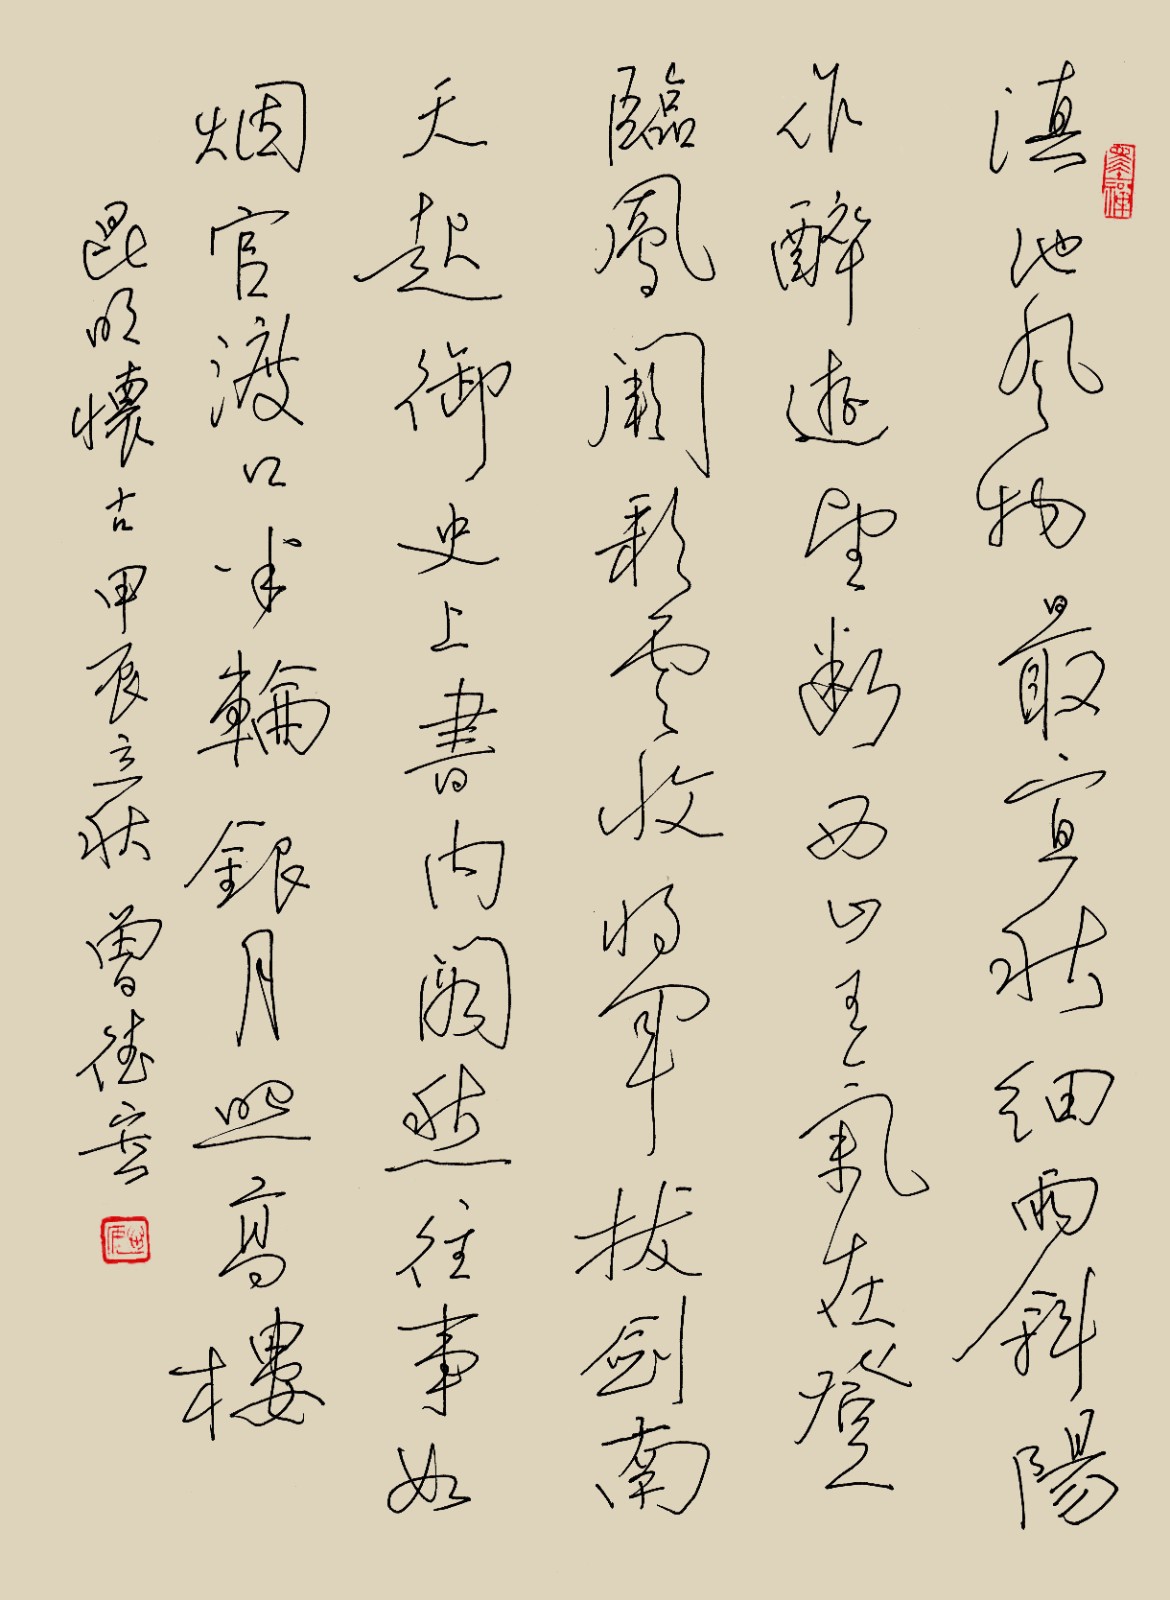 滇池风物最宜秋细雨斜陽
作醉遊望断西山王氣在登
臨鳳闕彩雲收将军拔劍南
天起御史上書内阁愁往事如
烟官渡口半輪銀月照高樓
昆明懷古甲辰立秋曾德